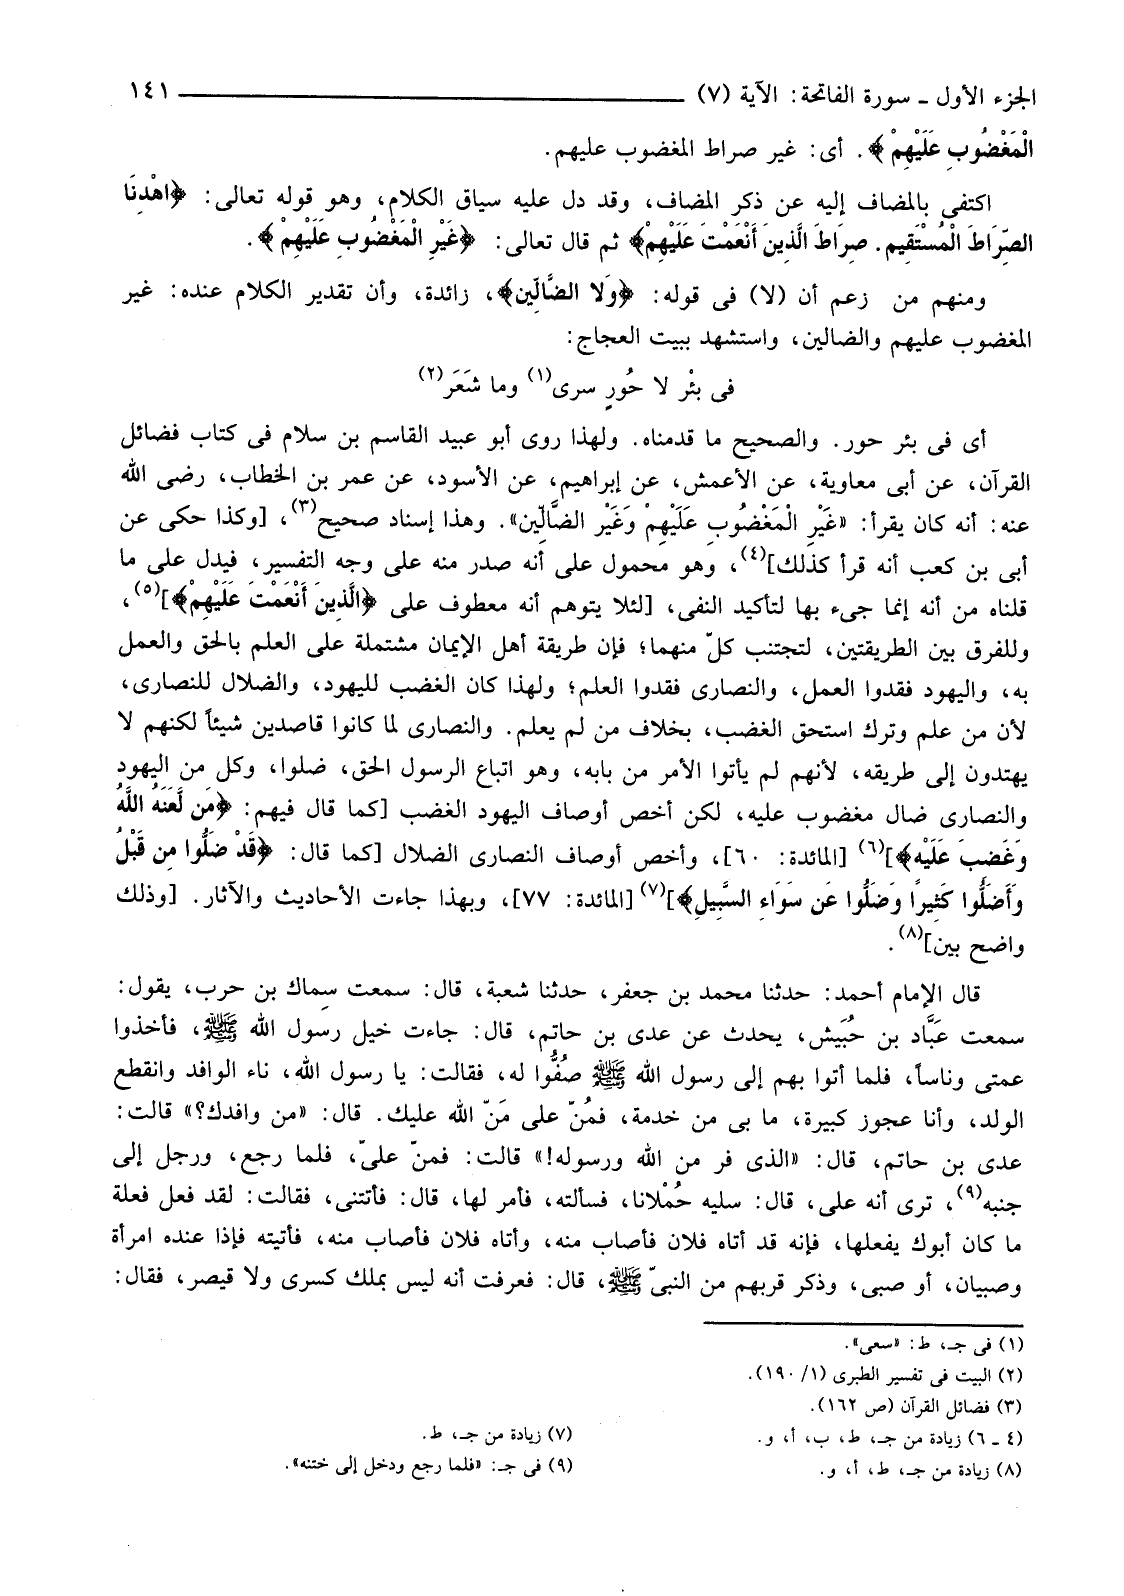 الجزء الأول ـ سورة الفاتحة: الآية (٧) ١٤١
الْمَغْضُوبِ عَلَيْهِمْ ﴾. أى: غير صراط المغضوب عليهم.
اكتفى بالمضاف إليه عن ذكر المضاف، وقد دل عليه سياق الكلام، وهو قوله تعالى: ﴿اهْدِنَا
الصِّرَاطَ الْمُسْتَقِيم. صِرَاطَ الَّذِينَ أَنْعَمْتَ عَلَيْهِمْ﴾ ثم قال تعالى: ﴿غَيْرِ الْمَغْضُوبِ عَلَيْهِمْ ﴾.
ومنهم من زعم أن (لا) فى قوله: ﴿وَلا الضَّالِّين﴾، زائدة، وأن تقدير الكلام عنده: غير
المغضوب عليهم والضالين، واستشهد ببيت العجاج:
فى بئْر لا حُورٍ سرى(١) وما شَعَر(٢)
أى فى بئر حور. والصحيح ما قدمناه. ولهذا روى أبو عبيد القاسم بن سلام فى كتاب فضائل
القرآن، عن أبى معاوية، عن الأعمش، عن إبراهيم، عن الأسود، عن عمر بن الخطاب، رضى الله
عنه: أنه كان يقرأ: «غَيْرِ الْمَغْضُوبِ عَلَيْهِمْ وَغَيْرِ الضَّالِّين». وهذا إسناد صحيح(٣)، [وكذا حكى عن
أبى بن كعب أنه قرأ كذلك](٤)، وهو محمول على أنه صدر منه على وجه التفسير، فيدل على ما
قلناه من أنه إنما جىء بها لتأكيد النفى، [لئلا يتوهم أنه معطوف على ﴿الَّذِينَ أَنْعَمْتَ عَلَيْهِمْ﴾](٥)،
وللفرق بين الطريقتين، لتجتنب كلّ منهما؛ فإن طريقة أهل الإيمان مشتملة على العلم بالحق والعمل
به، واليهود فقدوا العمل، والنصارى فقدوا العلم؛ ولهذا كان الغضب لليهود، والضلال للنصارى،
لأن من علم وترك استحق الغضب، بخلاف من لم يعلم. والنصارى لما كانوا قاصدين شيئاً لكنهم لا
يهتدون إلى طريقه، لأنهم لم يأتوا الأمر من بابه، وهو اتباع الرسول الحق، ضلوا، وكل من اليهود
والنصارى ضال مغضوب عليه، لكن أخص أوصاف اليهود الغضب [كما قال فيهم: ﴿مَن لَّعَنَهُ اللَّهُ
وَغَضِبَ عَلَيْهِ﴾](٦) [المائدة: ٦٠]، وأخص أوصاف النصارى الضلال [كما قال: ﴿قَدْ ضَلُّوا مِن قَبْلُ
وَأَضَلُّوا كَثِيرًا وَضَلُّوا عَن سَوَاءِ السَّبِيلِ﴾](٧) [المائدة: ٧٧]، وبهذا جاءت الأحاديث والآثار. [وذلك
واضح بين](٨).
قال الإمام أحمد: حدثنا محمد بن جعفر، حدثنا شعبة، قال: سمعت سِماك بن حرب، يقول:
سمعت عَبَّاد بن حُبَيش، يحدث عن عدى بن حاتم، قال: جاءت خيل رسول الله ﷺ، فأخذوا
عمتى وناساً، فلما أتوا بهم إلى رسول الله ﷺ صُفُّوا له، فقالت: يا رسول الله، ناء الوافد وانقطع
الولد، وأنا عجوز كبيرة، ما بى من خدمة، فمُنّ على مَنّ الله عليك. قال: «من وافدك؟» قالت:
عدى بن حاتم، قال: «الذى فر من الله ورسوله!» قالت: فمنّ علىّ، فلما رجع، ورجل إلى
جنبه(٩)، ترى أنه على، قال: سليه حُمْلانا، فسألته، فأمر لها، قال: فأتتنى، فقالت: لقد فعل فعلة
ما كان أبوك يفعلها، فإنه قد أتاه فلان فأصاب منه، وأتاه فلان فأصاب منه، فأتيته فإذا عنده امرأة
وصبيان، أو صبى، وذكر قربهم من النبىّ ﷺ، قال: فعرفت أنه ليس بملك كسرى ولا قيصر، فقال:
(١) فى جـ، ط: «سعى».
(٢) البيت فى تفسير الطبرى (١/ ١٩٠).
(٣) فضائل القرآن (ص ١٦٢).
(٤ ـ ٦) زيادة من جـ، ط، ب، أ، و. (٧) زيادة من جـ، ط.
(٨) زيادة من جـ، ط، أ، و. (٩) فى جـ: «فلما رجع ودخل إلى ختنه».